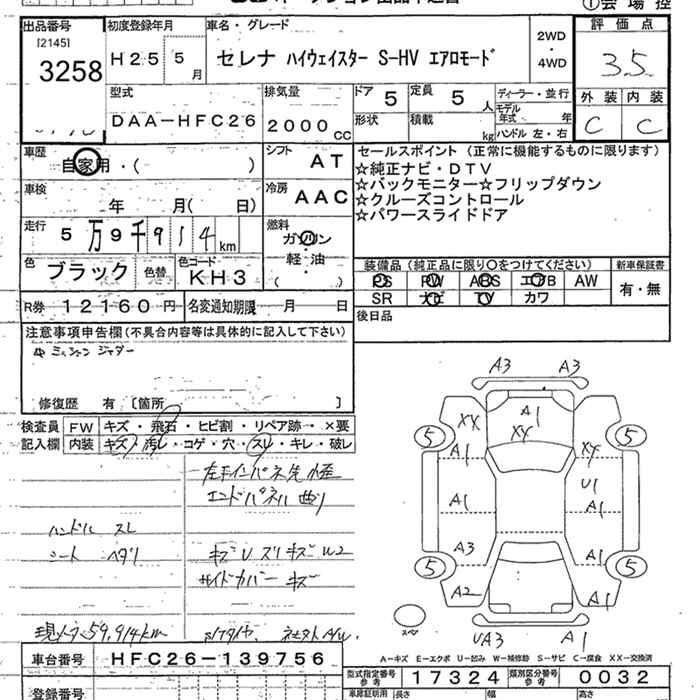 出品番号
[2145]
3258
初度登録年月
H25 5月
車名・グレード
セレナ ハイウェイスター S-HV エアロモード
2WD
・
4WD
評価点
3.5
外装 内装
C C
型式
DAA-HFC26
排気量
2000cc
ドア 5
定員 5人
形状
積載 kg
ディーラー・並行
モデル年式 年
ハンドル 左・右
車歴
自家用・( )
シフト AT
冷房 AAC
車検 年 月( 日)
走行 5万9千914km
燃料
ガソリン
軽・油
( )
色 ブラック 色替 色コード KH3
R券 12160円 名変通知期限 月 日
セールスポイント(正常に機能するものに限ります)
☆純正ナビ・DTV
☆バックモニター☆フリップダウン
☆クルーズコントロール
☆パワースライドドア
装備品(純正品に限り○をつけてください)
新車保証書
PS PW ABS エアB AW
SR ナビ TV カワ
有・無
後日品
注意事項申告欄(不具合内容等は具体的に記入して下さい)
ミッション ジャダー
修復歴 有 [箇所 ]
検査員記入欄
FW キズ・飛石・ヒビ割・リペア跡・×要
内装 キズ・汚レ・コゲ・穴・スレ・キレ・破レ
エンドパネル
ハンドル スレ
シート ヘタリ
キズ U ズリキズ U2
サイドカバー キズ
59,914km
A3 A3
A1
XY XY XY
5 5
A1
U1
A1 A1
A3 A1
5 5
A2 A1
スペア
UA3 A1
A-キズ E-エクボ U-凹み W-補修跡 S-サビ C-腐食 XX-交換済
車台番号 HFC26-139756
型式指定番号 参考 17324 類別区分番号 参考 0032
登録番号
車庫証明用 長さ 幅 高さ